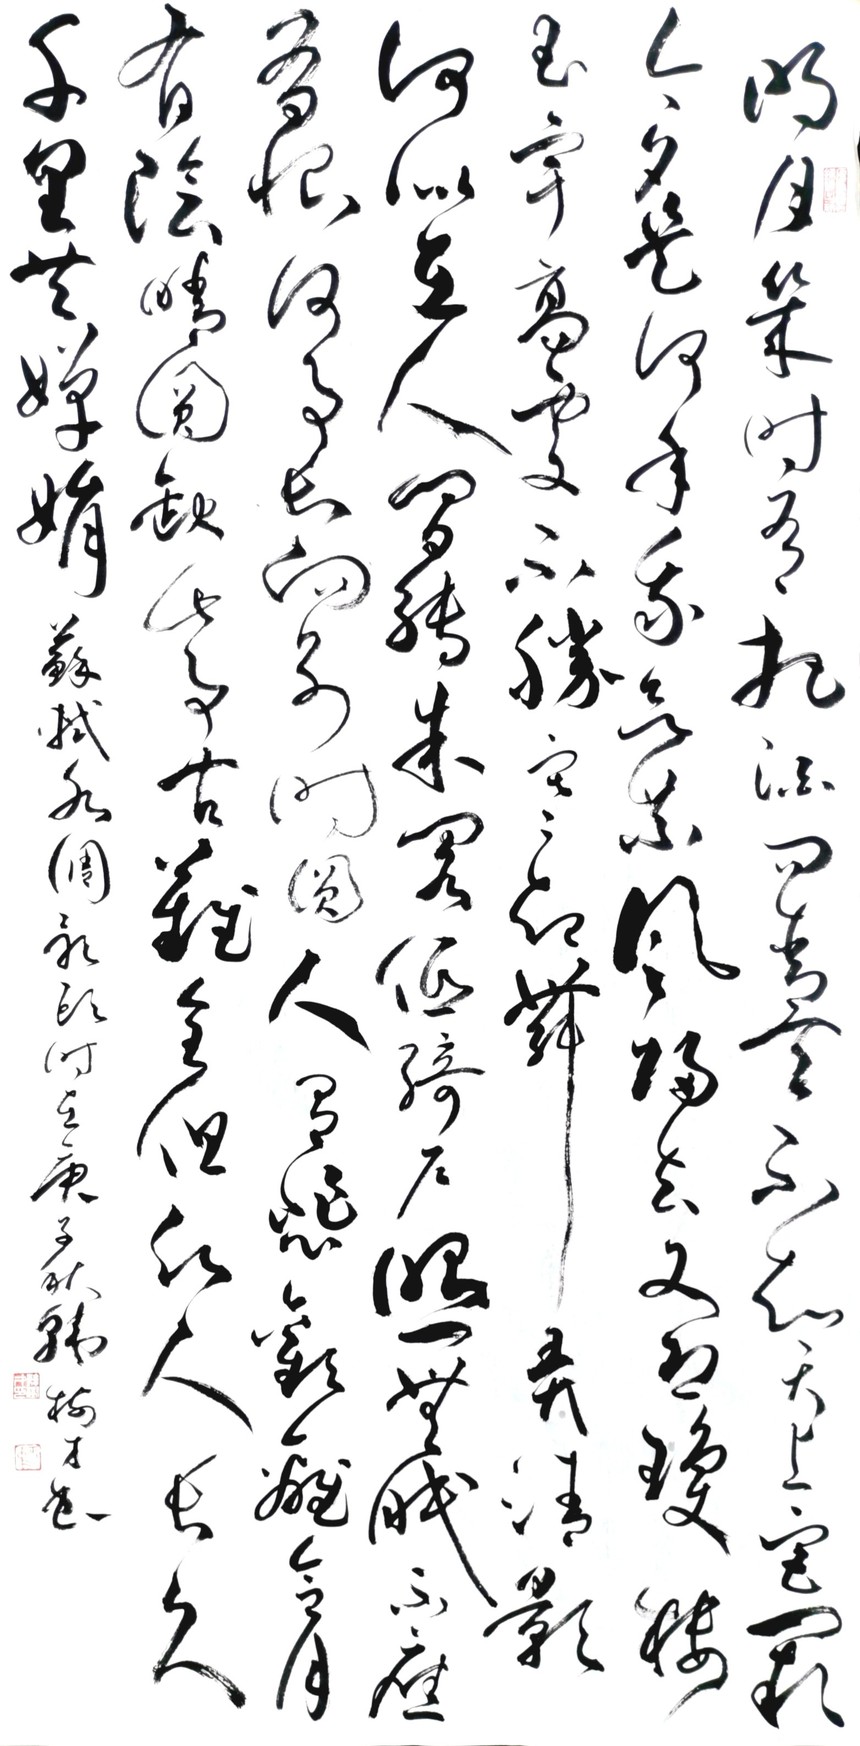 明月幾時有把酒問青天不知天上宮闕
今夕是何年我欲乘風歸去又恐瓊樓
玉宇高處不勝寒起舞弄清影
何似在人間轉朱閣低綺戶照無眠不應
有恨何事長向別時圓人有悲歡離合月
有陰晴圓缺此事古難全但願人長久
千里共嬋娟 蘇軾水調歌頭時在庚子秋韓樹才書